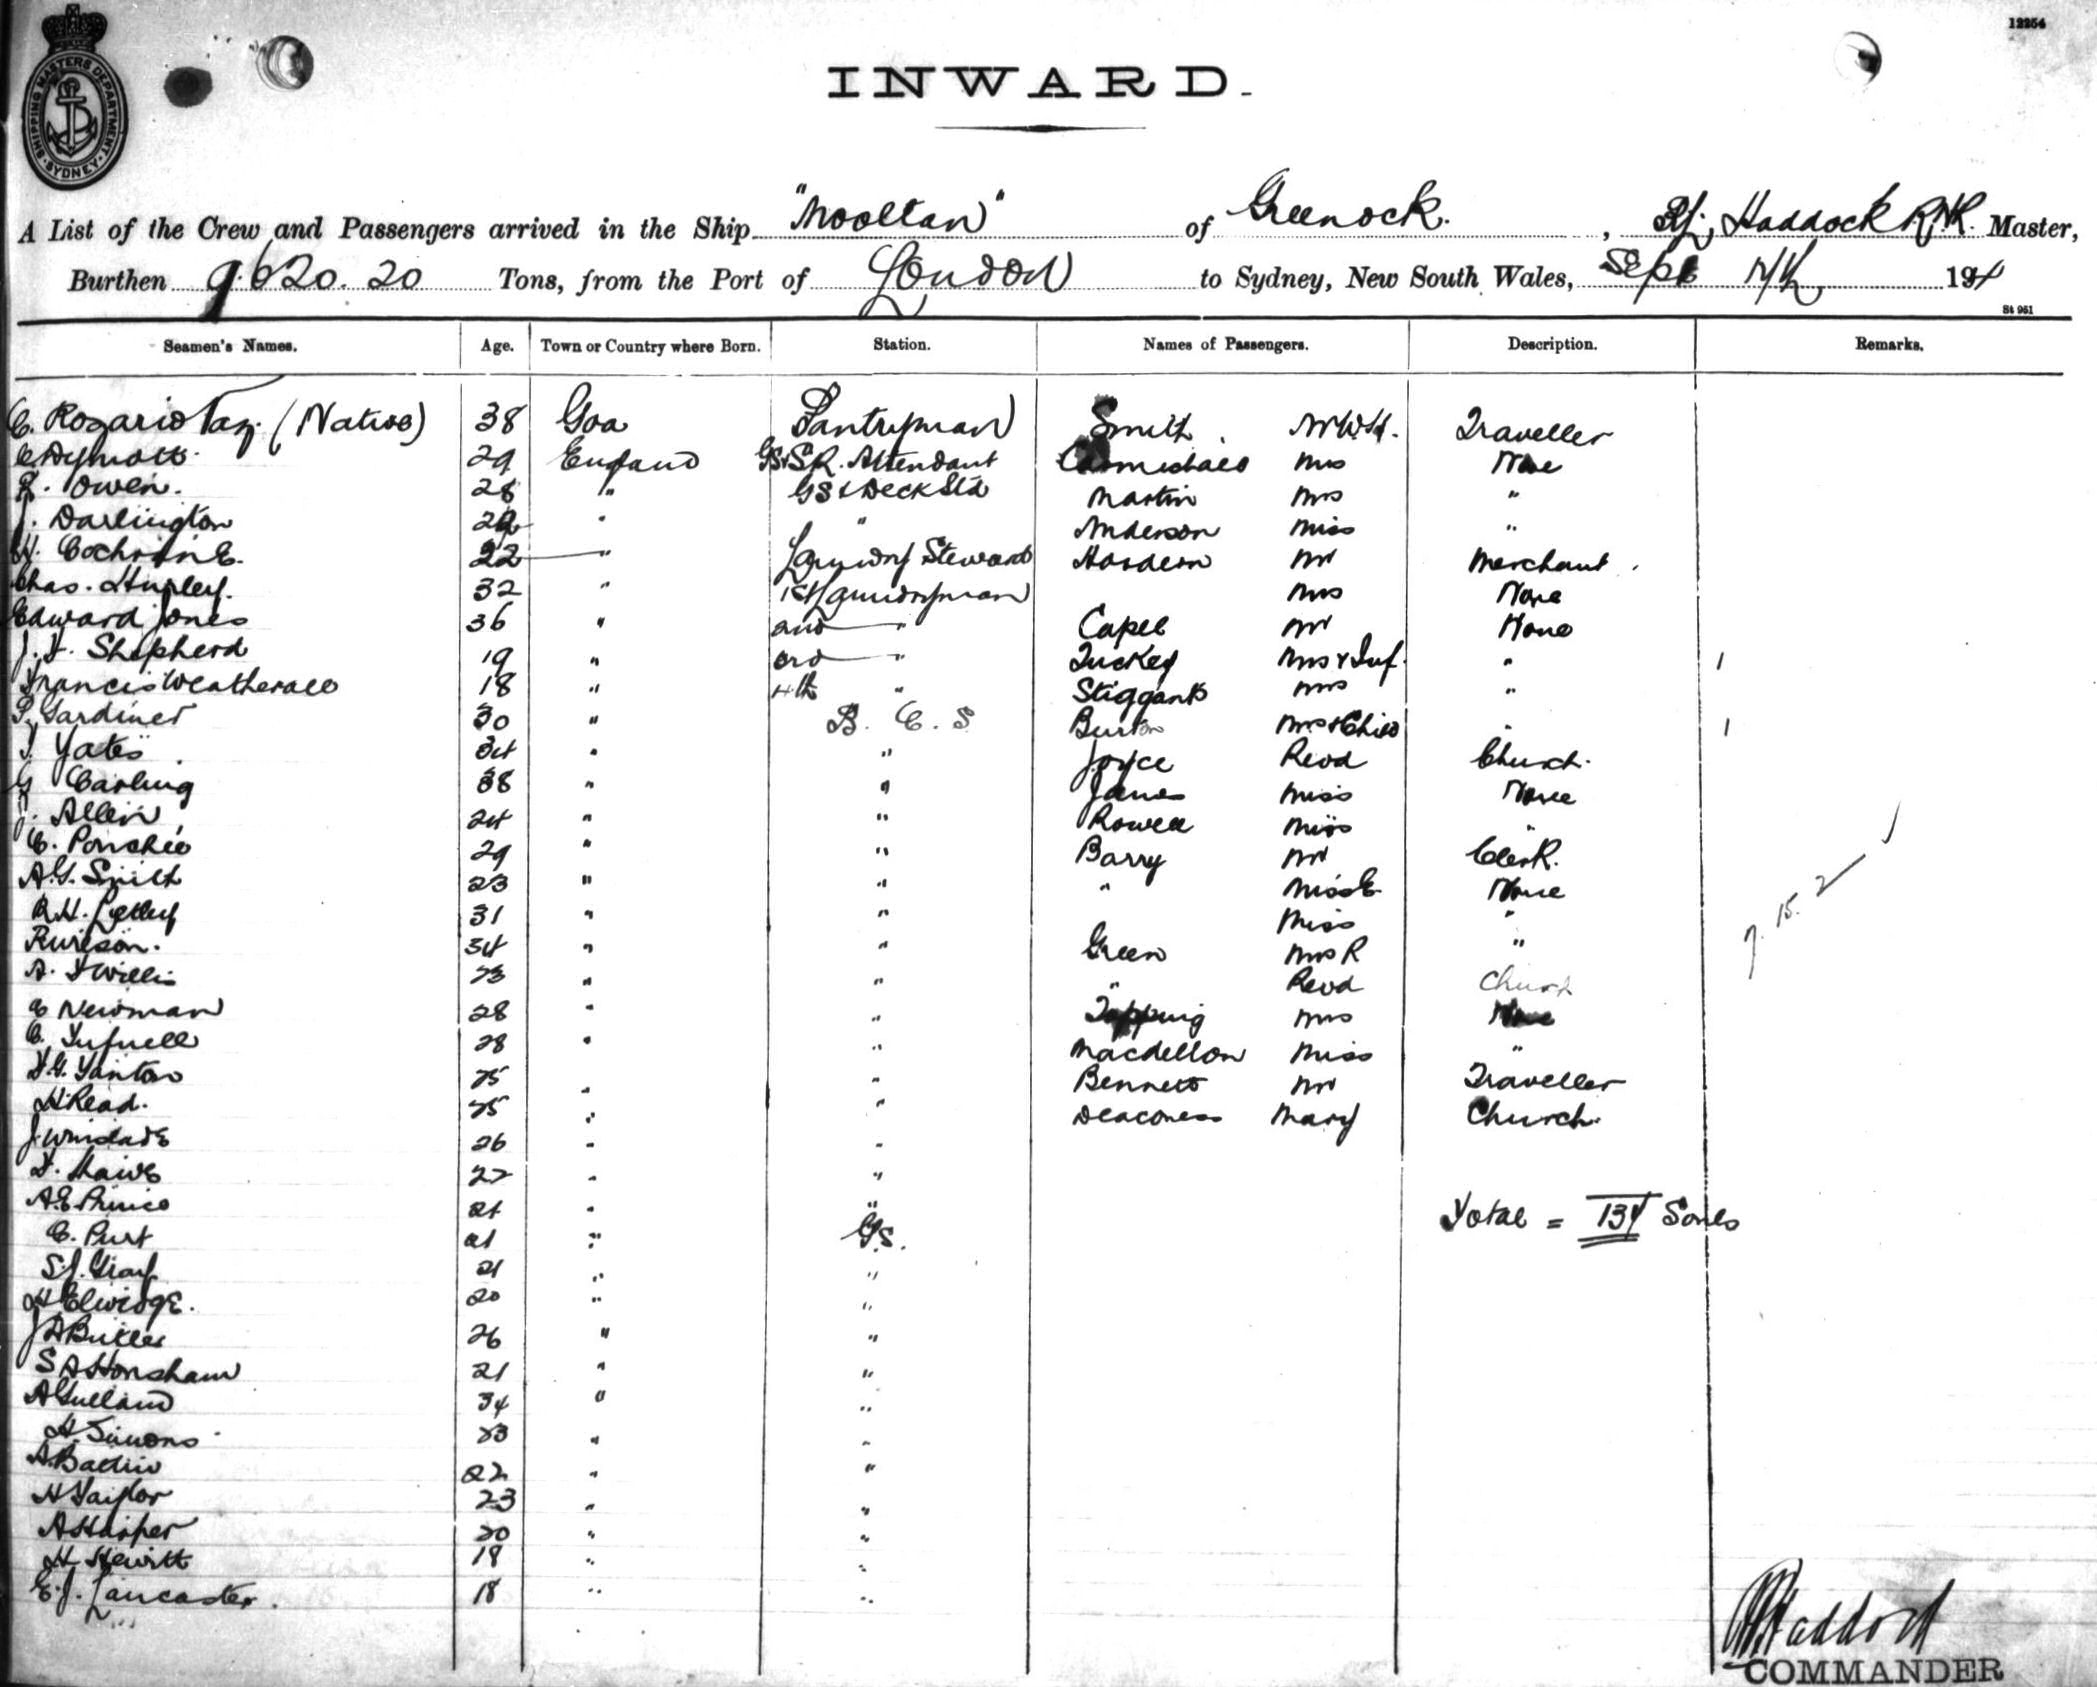 12254
SHIPPING MASTERS DEPARTMENT. SYDNEY.
INWARD.
A List of the Crew and Passengers arrived in the Ship "Mooltan" of Greenock. , Haddock R.N.R. Master,
Burthen 9620.20 Tons, from the Port of London to Sydney, New South Wales, Sept 191
St 951
Seamen's Names. Age. Town or Country where Born. Station. Names of Passengers. Description. Remarks.
C. Rozario Vaz. (Native) 38 Goa Pantryman Smith Mr W.H. Traveller
29 England S.R. Attendant Carmichael Mrs None
R. Owen. 28 " GS & Deck Std Martin Mrs "
J. Darlington " " Anderson Miss "
H. Cochrane. 22 " Laundry Steward Hordern Mr Merchant.
Chas. Hurley. 32 " 1st Laundryman Mrs None
Edward Jones 36 " 2nd " Capel Mr None
J. F. Shepherd 19 " 3rd " Tuckey Mrs & Inf. " 1
Francis Weatherall 18 " 4th " Stiggants Mrs "
P. Gardiner 30 " B. C. S Burton Mrs & Child " 1
T. Yates 34 " " Joyce Revd Church.
G Carling 38 " " Janes Miss None
J. Allen 24 " " Rowell Miss "
C. 29 " " Barry Mr Clerk.
A.G. Smith 23 " " " Miss E. None
R.H. 31 " " Miss "
34 " " Green Mrs R "
A. F Willis 23 " " " Revd Church
E Newman 28 " " Topping Mrs None
C. Tufnell 28 " " Miss "
F.G. 25 " " Bennett Mr Traveller
H Read. 25 " " Deaconess Mary Church.
J. 26 " "
F. 27 " "
A.E. Prince 21 " "
Total = Souls
C. Purt 21 " G.S.
S.J. Gray 21 " "
H Elvidge. 20 " "
J A Butler 26 " "
S A Horsham 21 " "
A Gulland 34 " "
H. Simons 23 " "
A. 22 " "
H Taylor 23 " "
A Harper 20 " "
H Hewitt 18 " "
E. J. Lancaster. 18 " "
Haddock
COMMANDER